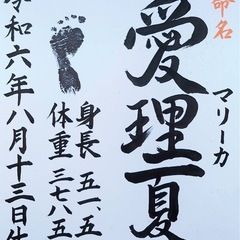 命名
マリーカ
愛理夏
身長 五一、五
体重 三七八五
令和六年八月十三日生